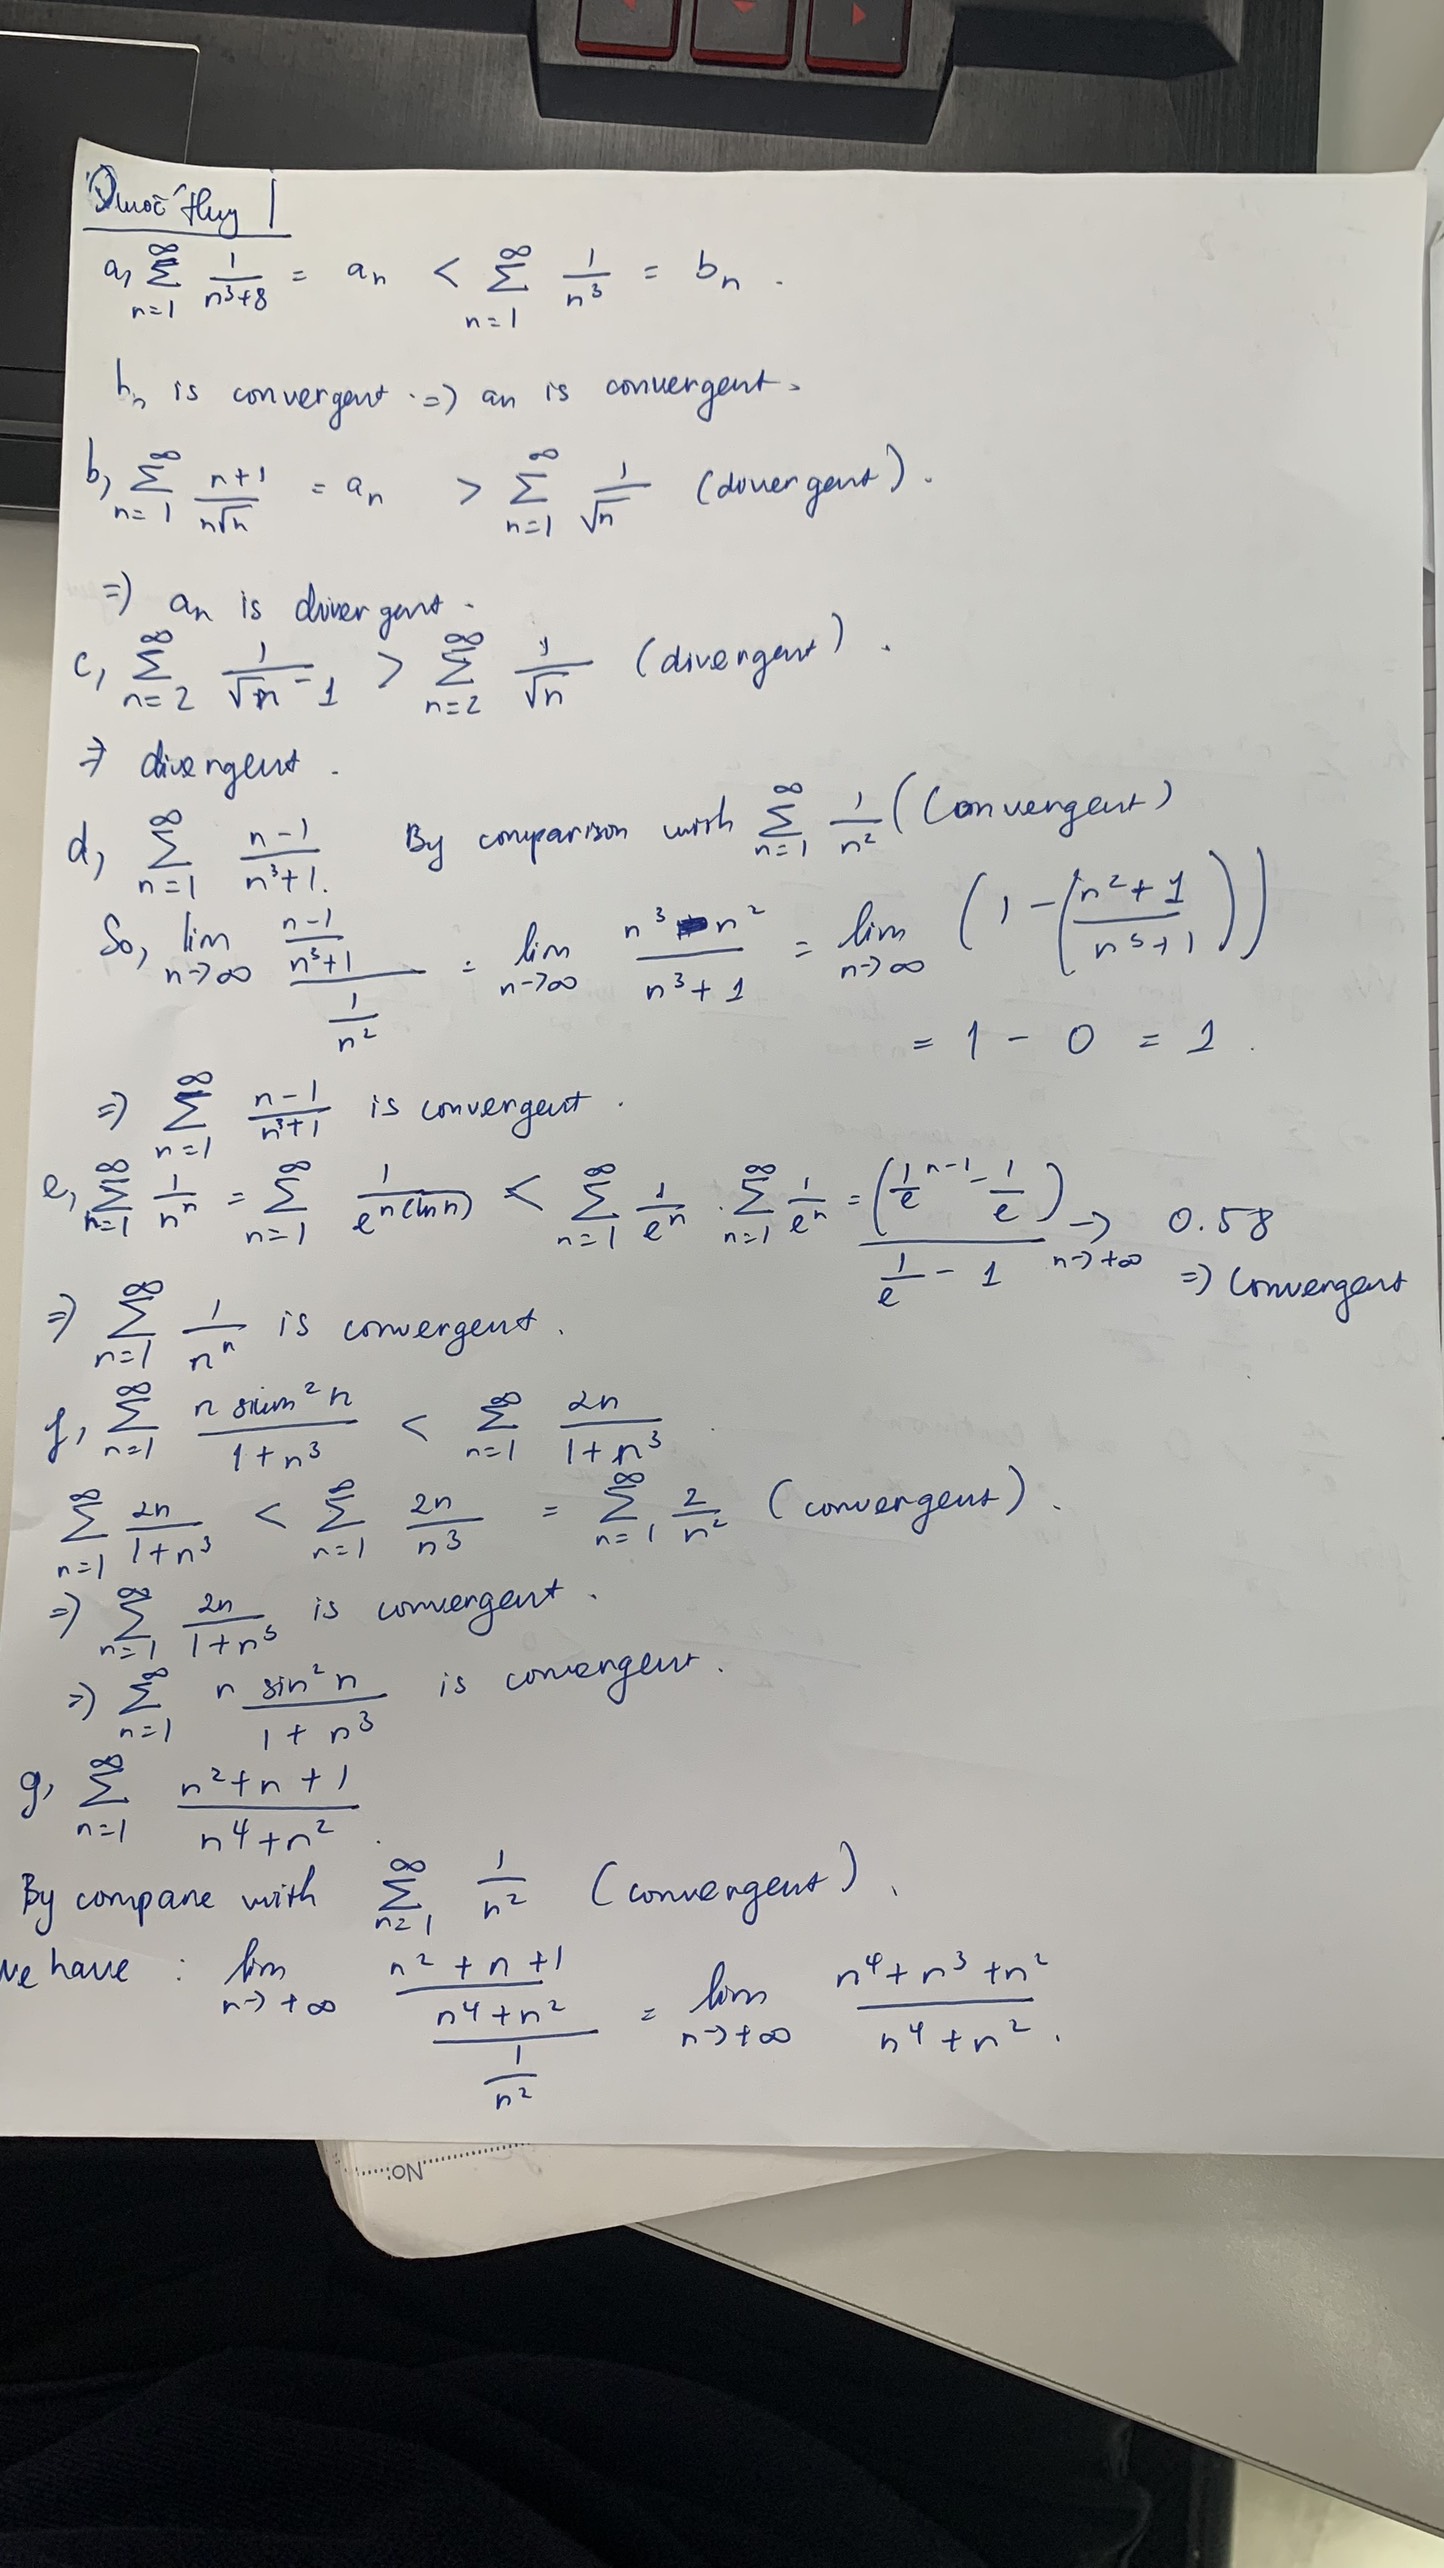 Quốc Huy
a, ∑_{n=1}^{∞} 1/(n³+8) = aₙ < ∑_{n=1}^{∞} 1/n³ = bₙ .
bₙ is convergent. => an is convergent.
b, ∑_{n=1}^{∞} (n+1)/(n√n) = aₙ > ∑_{n=1}^{∞} 1/√n (divergent).
=> aₙ is divergent.
c, ∑_{n=2}^{∞} 1/(√n - 1) > ∑_{n=2}^{∞} 1/√n (divergent).
=> divergent.
d, ∑_{n=1}^{∞} (n-1)/(n³+1). By comparison with ∑_{n=1}^{∞} 1/n² (Convergent)
So, lim_{n→∞} ((n-1)/(n³+1))/(1/n²) = lim_{n→∞} (n³ - n²)/(n³+1) = lim_{n→∞} (1 - ((n²+1)/(n³+1)))
= 1 - 0 = 1.
=> ∑_{n=1}^{∞} (n-1)/(n³+1) is convergent.
e, ∑_{n=1}^{∞} 1/nⁿ = ∑_{n=1}^{∞} 1/e^{n(ln n)} < ∑_{n=1}^{∞} 1/eⁿ . ∑_{n=1}^{∞} 1/eⁿ = (1/e^{n-1} - 1/e)/(1/e - 1) →_{n→+∞} 0.58
=> Convergent
=> ∑_{n=1}^{∞} 1/nⁿ is convergent.
f, ∑_{n=1}^{∞} (n sin²n)/(1+n³) < ∑_{n=1}^{∞} 2n/(1+n³)
∑_{n=1}^{∞} 2n/(1+n³) < ∑_{n=1}^{∞} 2n/n³ = ∑_{n=1}^{∞} 2/n² (convergent).
=> ∑_{n=1}^{∞} 2n/(1+n³) is convergent.
=> ∑_{n=1}^{∞} n sin²n/(1+n³) is convergent.
g, ∑_{n=1}^{∞} (n²+n+1)/(n⁴+n²).
By compare with ∑_{n=1}^{∞} 1/n² (convergent).
We have : lim_{n→+∞} ((n²+n+1)/(n⁴+n²))/(1/n²) = lim_{n→+∞} (n⁴+n³+n²)/(n⁴+n²).
No: